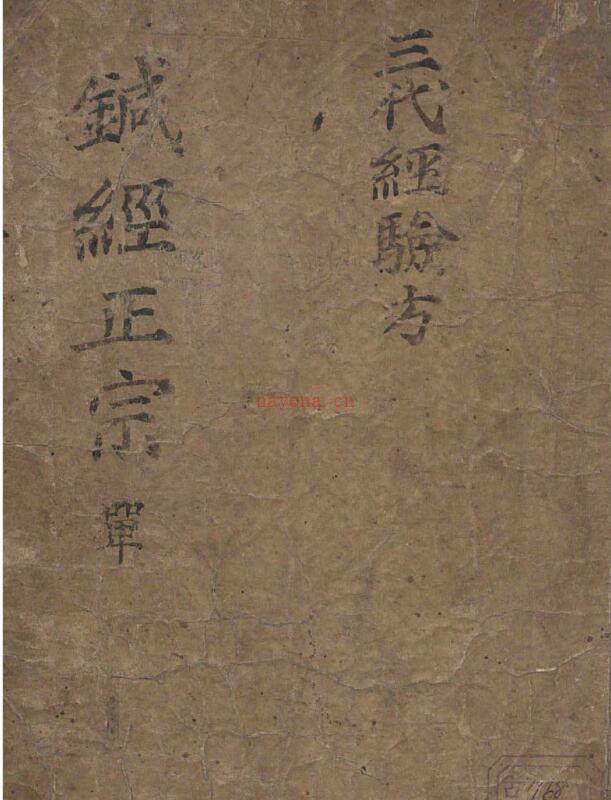 三代經驗方
鍼經正宗 單
nayona.cn
古 1768